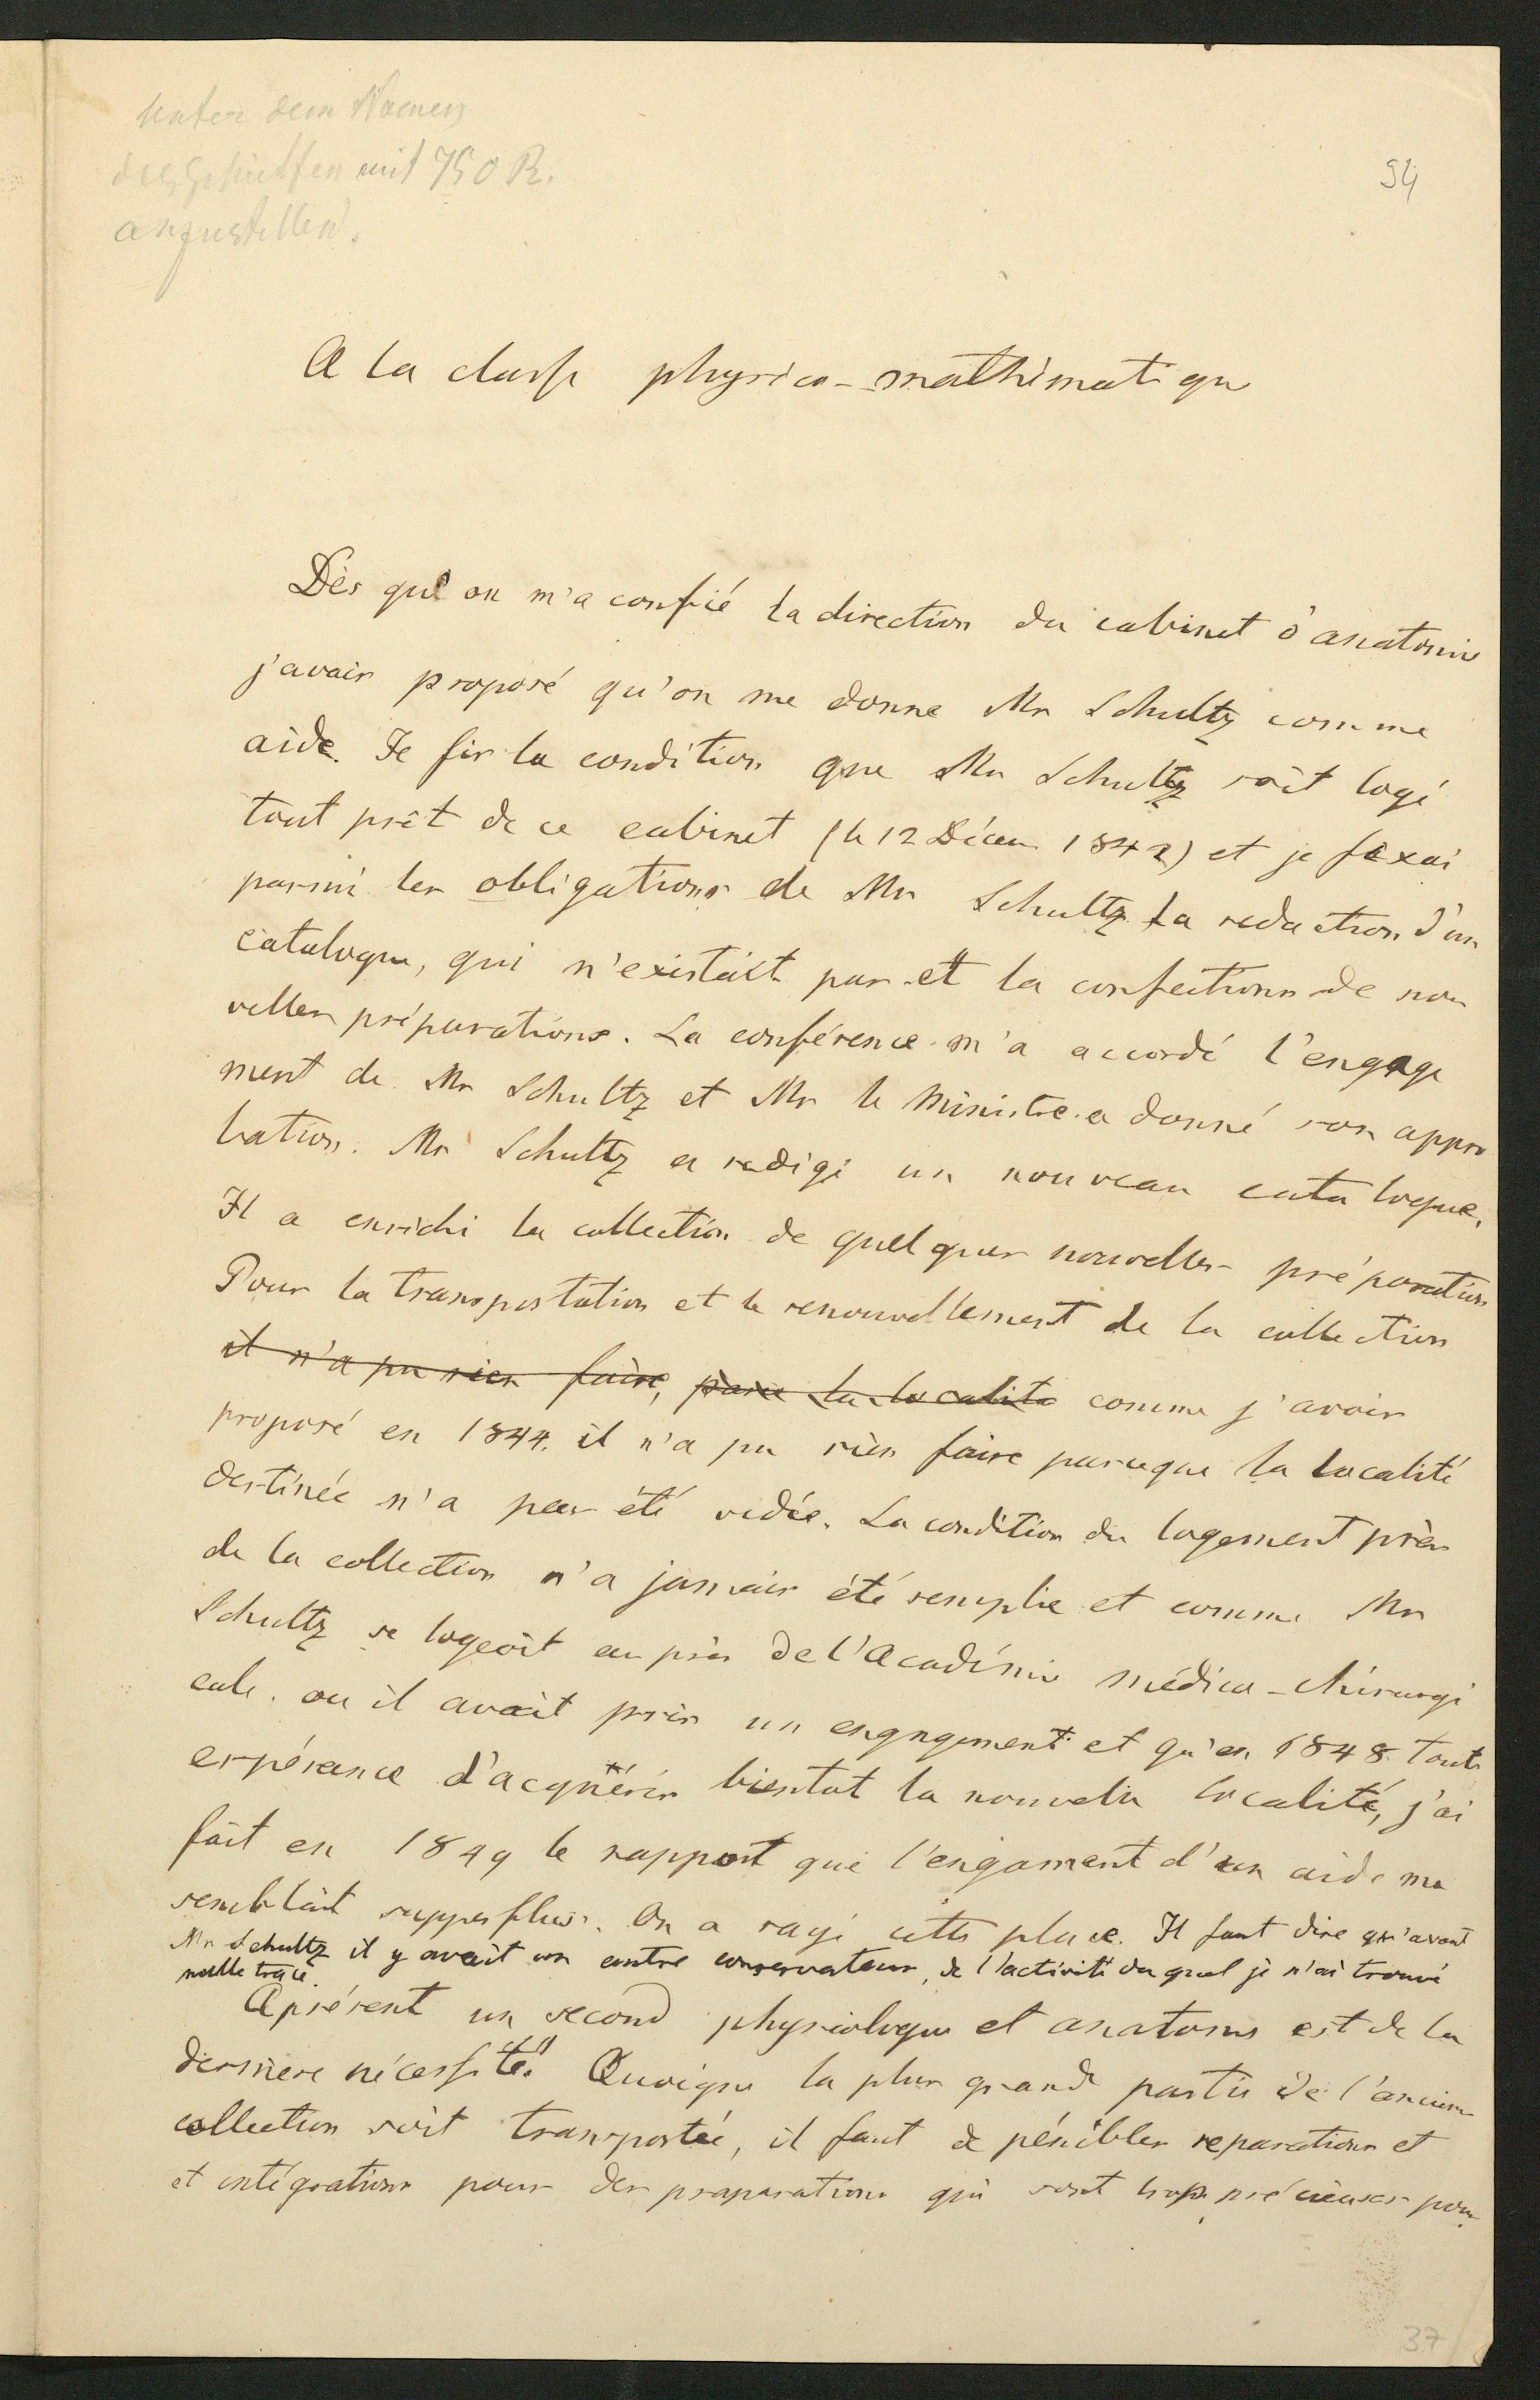 Unter dem Namen
des Gehülfen mit 750 R.
anzustellen.
94
A la classe physico-mathématique
Dès que on m'a confié la direction du cabinet d'anatomie
j'avais proposé qu'on me donne Mr Schultz comme
aide. Je fis la condition que Mr Schultz soit logé
tout prêt de ce cabinet (le 12 Décem 1842) et je fixai
parmi les obligations de Mr Schultz la redaction d'un
catalogue, qui n'existait pas et la confections de nou
velles préparations. La conférence m'a accordé l'engage
ment de Mr Schultz et Mr le Ministre a donné son appro
bation. Mr Schultz a redigé un nouveau catalogue.
Il a enrichi la collection de quelques nouvelles préparations
Pour la transportation et le renouvellement de la collection
il n'a pu rien faire, parce la localité comme j'avais
proposé en 1844. il n'a pu rien faire parceque la localité
destinée n'a pas été vidée. La condition du logement près
de la collection n'a jamais été remplie et comme Mr
Schultz se logeoit au près de l'Académie médico-chirurgi
cale. ou il avait pris un engagement et qu'en 1848 toute
espérance d'acquérir bientot la nouvelle localité, j'ai
fait en 1849 le rapport que l'engament d'un aide me
semblait supperflus. On a rayé cette place. Il faut dire qu'avant
Mr Schultz il y avait un autre conservateur, de l'activité du quel je n'ai trouvé
nulle trace.
Aprésent un second physiologue et anatome est de la
dernière nécessité. Quoique la plus grande partie de l'ancienne
collection soit transportée, il faut de pénibles reparations et
et intégrations pour des praparations qui sont trop précieuses pour
37